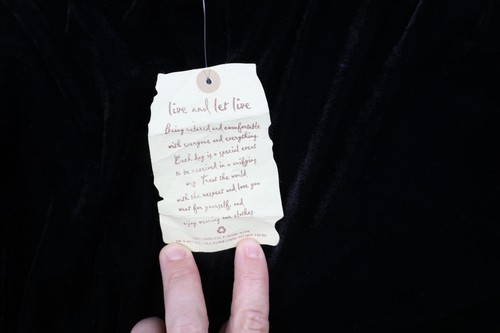 live and let live
Being relaxed and comfortable
with everyone and everything.
Each day is a special event
to be exercised in a unifying
way. Treat the world
with the respect and love you
want for yourself, and
enjoy wearing our clothes.